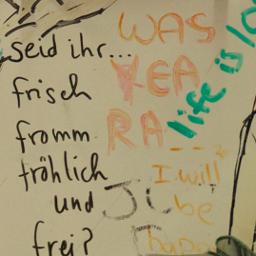 seid ihr...
frisch
fromm
fröhlich
und
frei?
WAS
YEA
RA
life is
I will
be